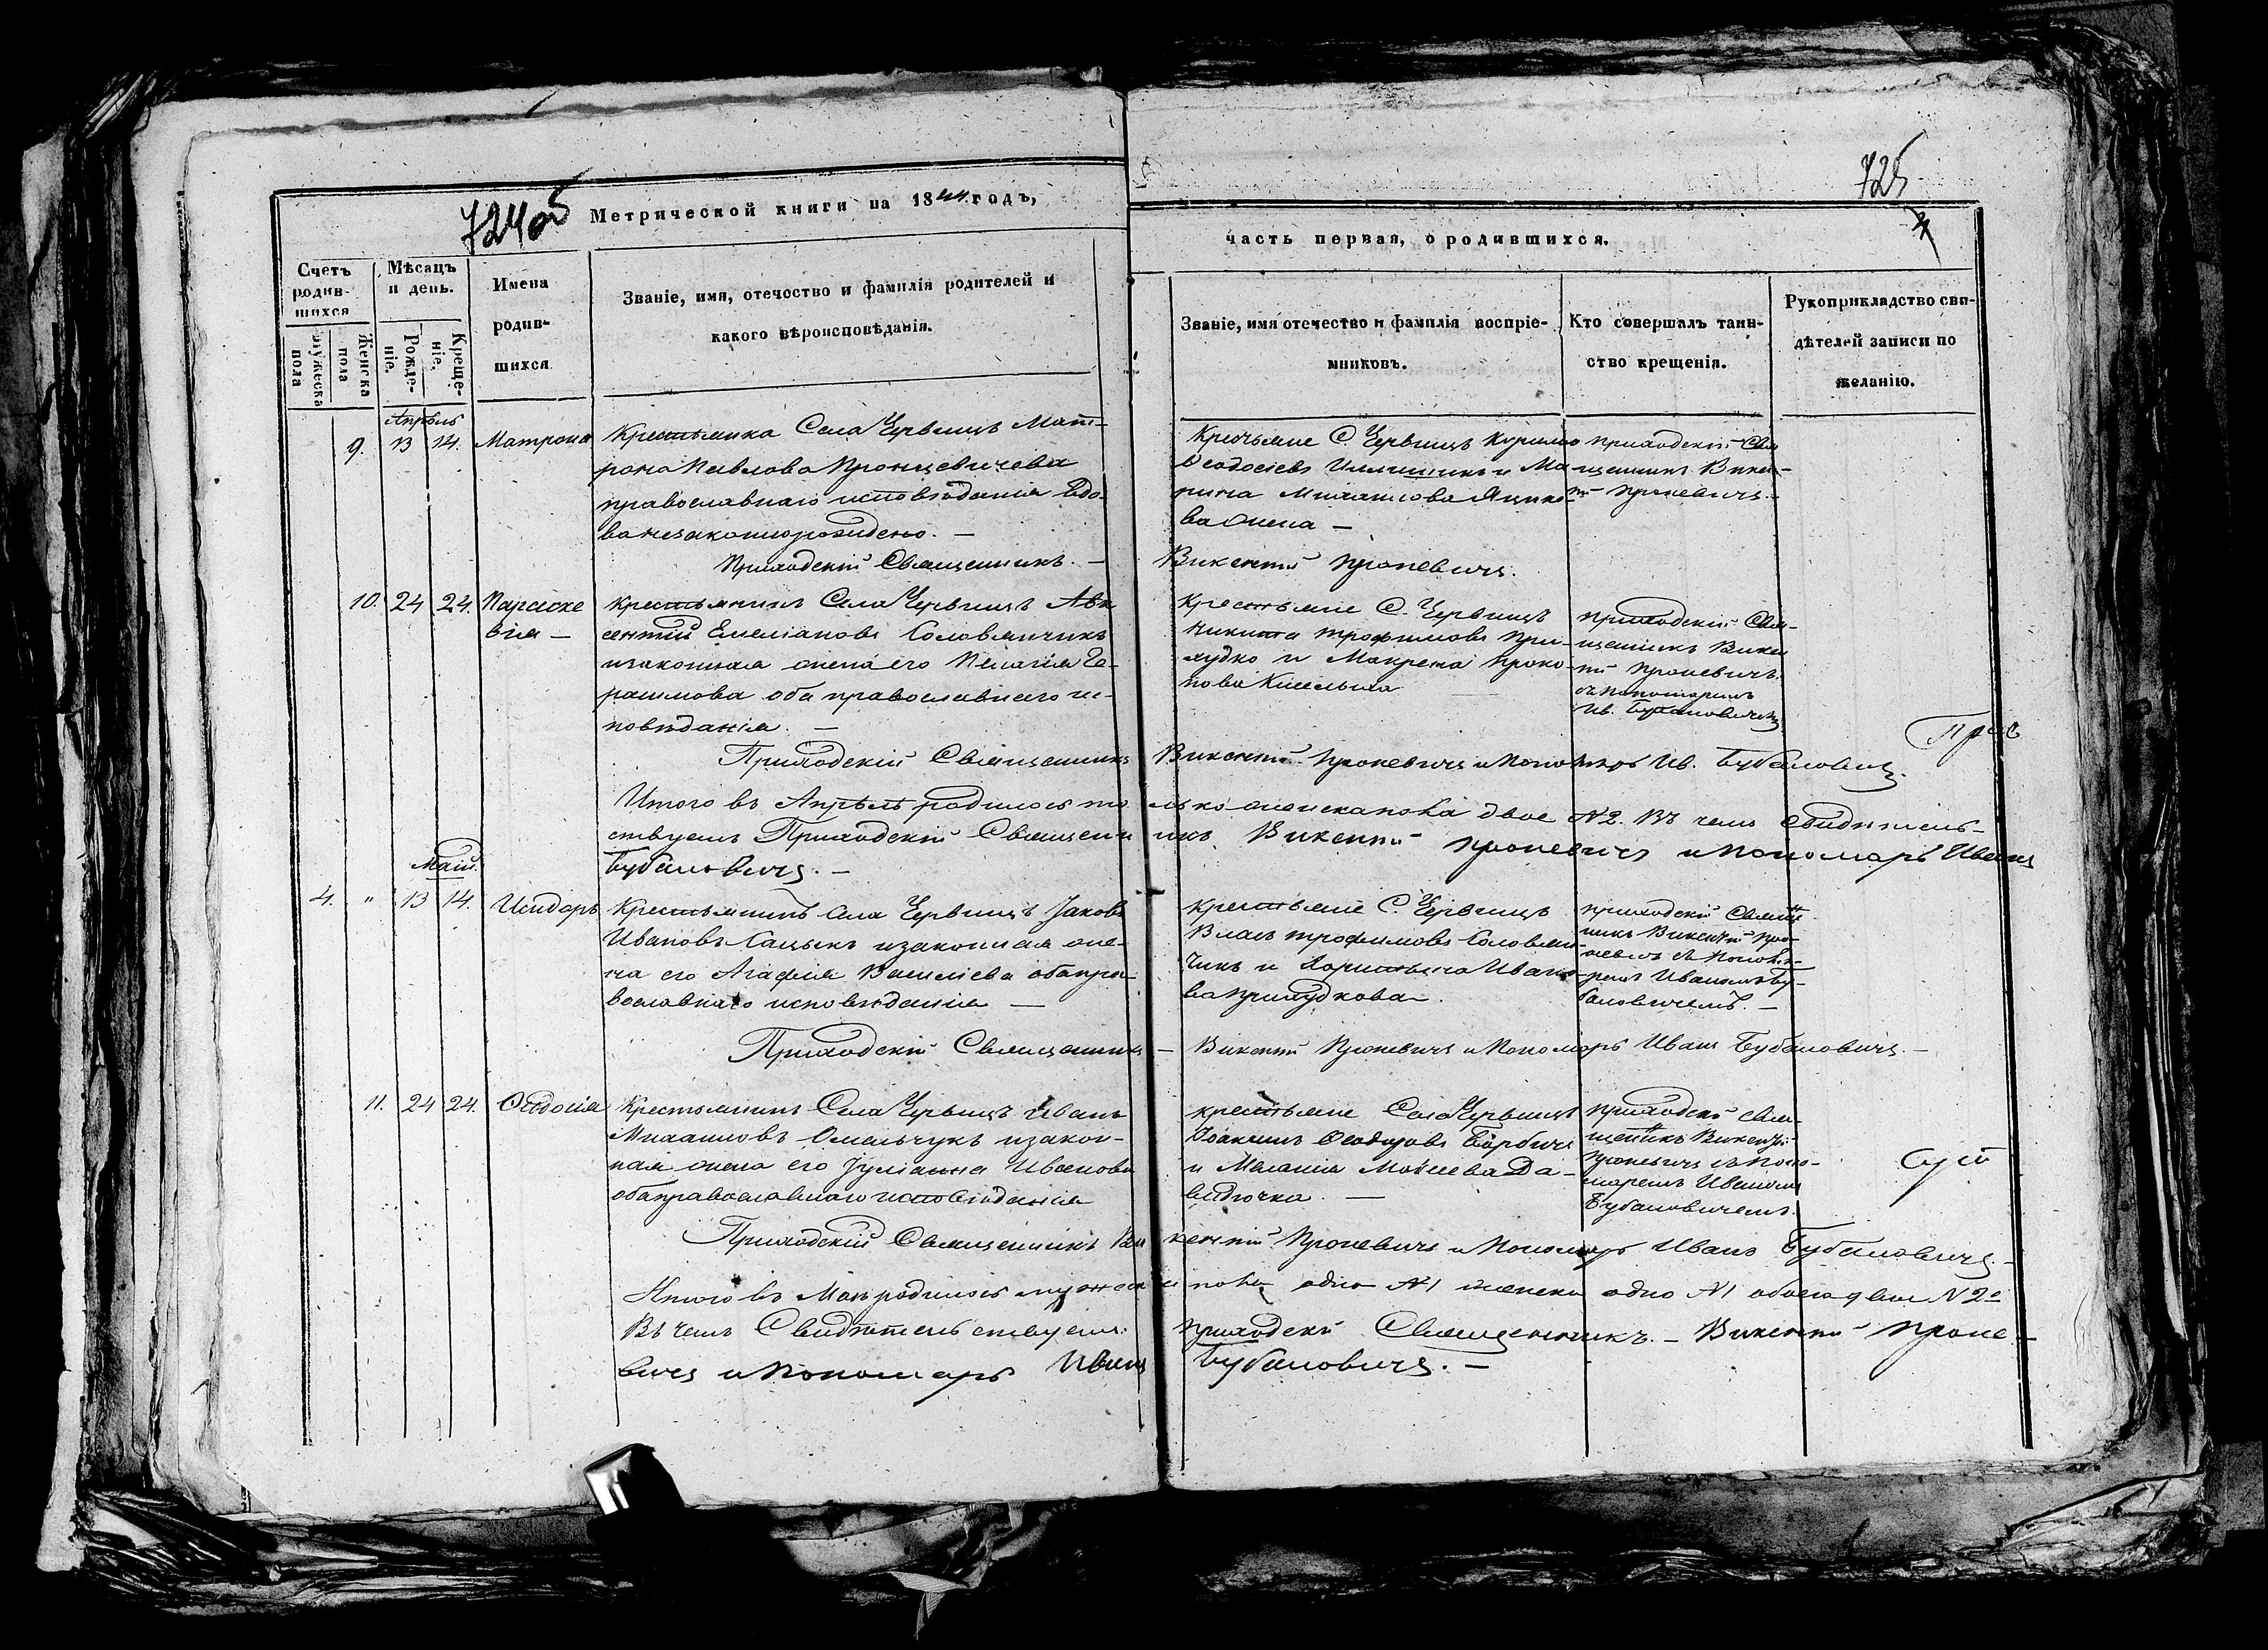 724об
Метрической книги на 1844 годъ,
725
часть первая, о родившихся.
Счетъ родив-
шихся
Мужеска пола
Женска пола
Мѣсяцъ
и день.
Рожде-
ніе.
Креще-
ніе.
Имена
родив-
шихся
Званіе, имя, отечество и фамилія родителей и
какого вѣроисповѣданія.
Званіе, имя отечество и фамилія воспріе-
мниковъ.
Кто совершалъ таин-
ство крещенія.
Рукоприкладство сви-
дѣтелей записи по
желанію.
Апрѣль
9. 13 14. Матрона
Крестьянка Села Червищъ Мат-
рона Павлова Пронцевичева
православнаго исповѣданія вдо-
ва незаконнорожденно. —
Крестьяне С. Червищъ
Ѳеодосіевъ и Ма-
рина Михаилова Яцико-
ва жена —
приходскій Свя
щенникъ Викен-
тій Проневичъ.
Приходскій Священникъ. —
Викентій Проневичъ.
10. 24 24. Параске
вія —
Крестьянинъ Села Червищъ Авк
сентій Емеліановъ Соловянчикъ
и законная жена его Пелагія Ге-
расимова оба православнаго ис-
повѣданія. —
Крестьяне С. Червищъ
Никита Трофимовъ При-
лудко и Макрена Проко-
пова
приходскій Свя-
щенникъ Викен
тій Проневичъ.
съ Пономаремъ
Ив. Бубановичемъ
Приходскій Священникъ
Викентій Проневичъ и Пономарь Ив. Бубановичъ.
Итого въ Апрѣлѣ родилось то
лько женска пола двое №2. Въ чемъ свидѣтель-
ствуемъ Приходскій Священн
икъ Викентій Проневичъ и Пономарь Иванъ
Бубановичъ. —
Май.
4. " 13 14. Исидоръ
Крестьянинъ Села Червищъ Јаковъ
Ивановъ Сацыкъ и законная же-
на его Агафія Василіева оба пра-
вославнаго исповѣданія —
крестьяне С. Червищъ
Власъ Трофимовъ Соловян-
чикъ и Харитына Ивано-
ва Прилудкова.
приходскій Священ
никъ Викентій Про-
невичъ съ Понома-
ремъ Иваномъ Бу-
бановичемъ. —
Приходскій Священникъ —
Викентій Проневичъ и Пономарь Иванъ Бубановичъ. —
11. 24 24. Ѳеодосія
Крестьянинъ Села Червищъ Иванъ
Михаиловъ Омельчукъ и закон-
ная жена его Јуліанна Иванова
оба православнаго исповѣданія
крестьяне Села Червищъ
Іоакимъ Ѳеодоровъ
и Меланія Моисеева Да-
видючка. —
приходскій Свя-
щенникъ Викентій
Проневичъ съ Поно-
маремъ Иваномъ
Бубановичемъ.
Приходскій Священникъ Ви
кентій Проневичъ и Пономарь Иванъ Бубановичъ. —
Итого въ Маѣ родилось мужеск
а пола одно №1 женска одно №1 обоего двое №2е
Въ чемъ Свидѣтельствуемъ:
приходскій Священникъ. — Викентій Проне-
вичъ и Пономарь Иванъ
Бубановичъ. —